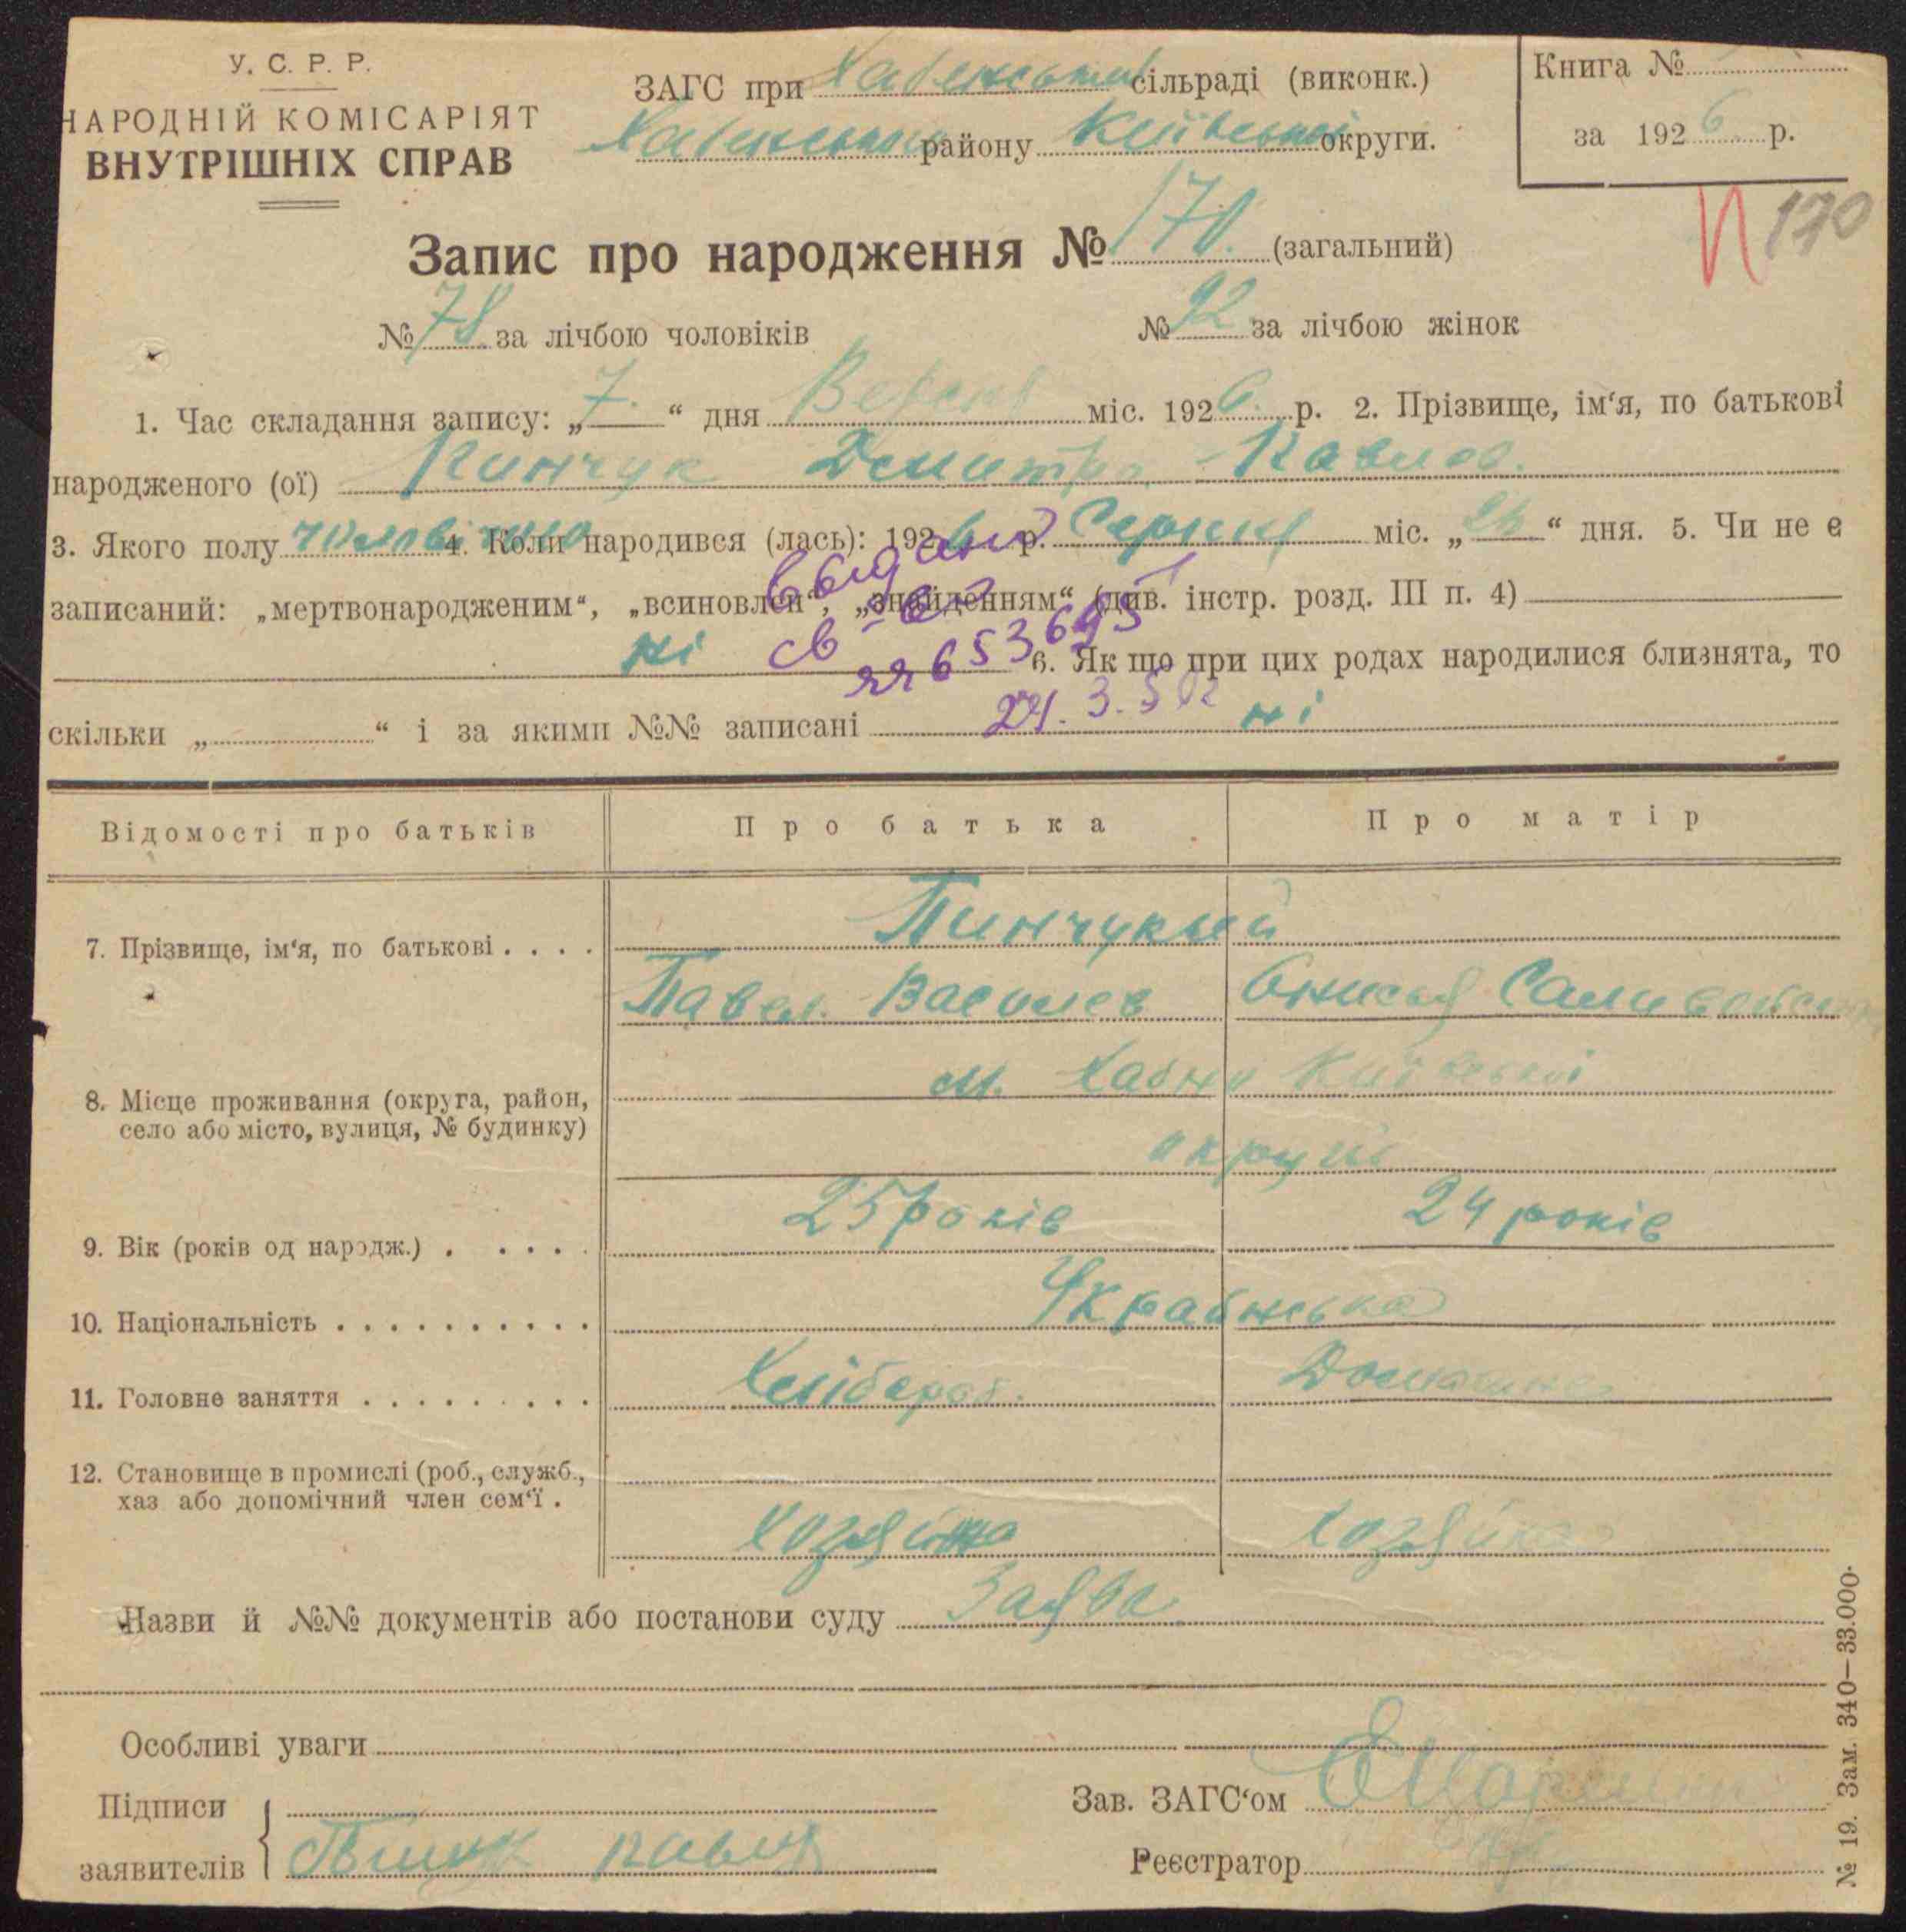 У. С. Р. Р.
НАРОДНІЙ КОМІСАРІЯТ
ВНУТРІШНІХ СПРАВ
ЗАГС при Хабенський сільраді (виконк.)
Хабенського району Київської округи.
Книга №
за 1926 р.
П 170
Запис про народження № 170. (загальний)
№ 78 за лічбою чоловіків № 92 за лічбою жінок
1. Час складання запису: „7.“ дня Вересня міс. 1926. р. 2. Прізвище, ім‘я, по батькові
народженого (ої) Пинчук Демитро Павлов.
3. Якого полу чоловічого 4. Коли народився (лась): 1926 р. Серпня міс. „26“ дня. 5. Чи не є
выдано
записаний: „мертвонародженим“, „всиновлен“, „знайденням“ (див. інстр. розд. III п. 4)
св-во
ні 6. Як що при цих родах народилися близнята, то
яя 653695
скільки „ “ і за якими №№ записані ні
24. 3. 50г
Відомості про батьків Про батька Про матір
7. Прізвище, ім‘я, по батькові . . . . Пинчукый
Павел Василев Онисья
8. Місце проживання (округа, район, м. Хабни Київської
село або місто, вулиця, № будинку) округи
9. Вік (років од народж.) . . . . . 25 років 24 років
10. Національність . . . . . . . . . . Українська
11. Головне заняття . . . . . . . . . Хлібороб. Домашнє
12. Становище в промислі (роб., служб.,
хаз або допомічний член сем‘ї . хозяина хозяйка
Назви й №№ документів або постанови суду Заява
Особливі уваги
Підписи Зав. ЗАГС‘ом
заявителів Павло Реєстратор
№ 19. Зам. 340—33.000.